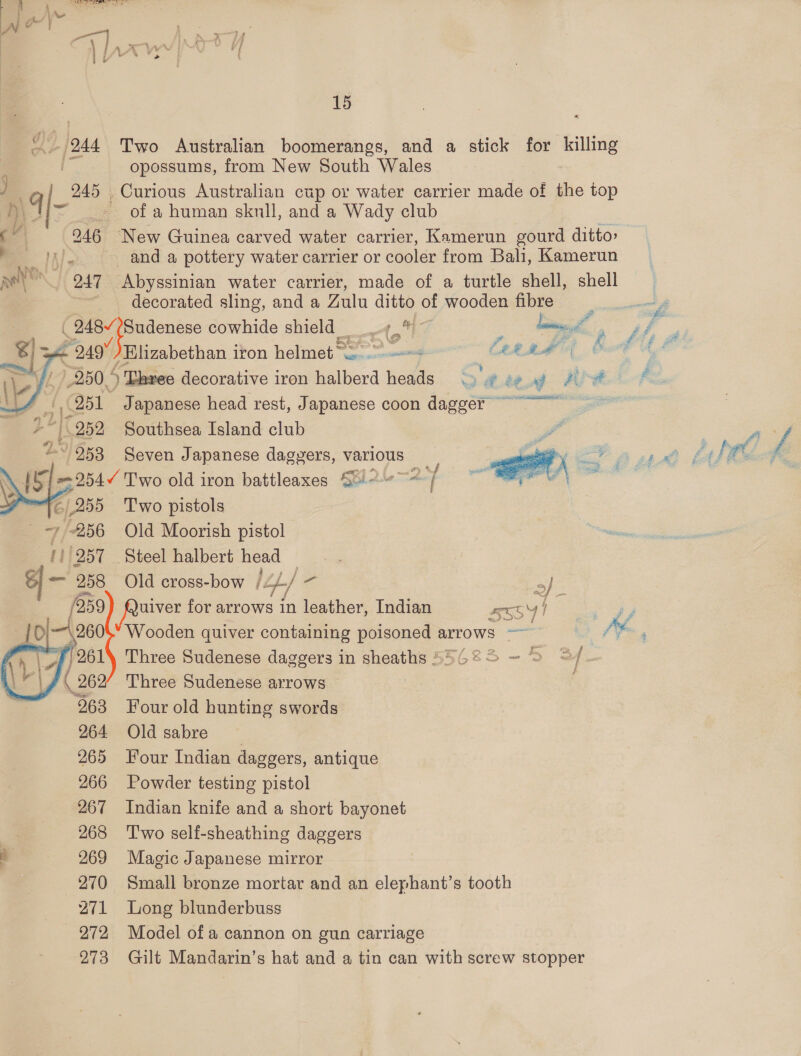 15
244 Two Australian boomerangs, and a stick for killing
opossums, from New South Wales
245 Curious Australian cup or water carrier made of the top
of a human skull, and a Wady club
246 New Guinea carved water carrier, Kamerun gourd ditto,
and a pottery water carrier or cooler from Bali, Kamerun
247 Abyssinian water carrier, made of a turtle shell, shell
decorated sling, and a Zulu ditto of wooden fibre
248 Sudenese cowhide shield
249 Elizabethan iron helmet
250 Three decorative iron halberd heads
251 Japanese head rest, Japanese coon dagger
252 Southsea Island club
253 Seven Japanese daggers, various
254 Two old iron battleaxes
255 Two pistols
256 Old Moorish pistol
257 Steel halbert head
258 Old cross-bow
259 Quiver for arrows in leather, Indian
260 Wooden quiver containing poisoned arrows
261 Three Sudenese daggers in sheaths
262 Three Sudenese arrows
263 Four old hunting swords
264 Old sabre
265 Four Indian daggers, antique
266 Powder testing pistol
267 Indian knife and a short bayonet
268 Two self-sheathing daggers
269 Magic Japanese mirror
270 Small bronze mortar and an elephant's tooth
271 Long blunderbuss
272 Model of a cannon on gun carriage
273 Gilt Mandarin's hat and a tin can with screw stopper